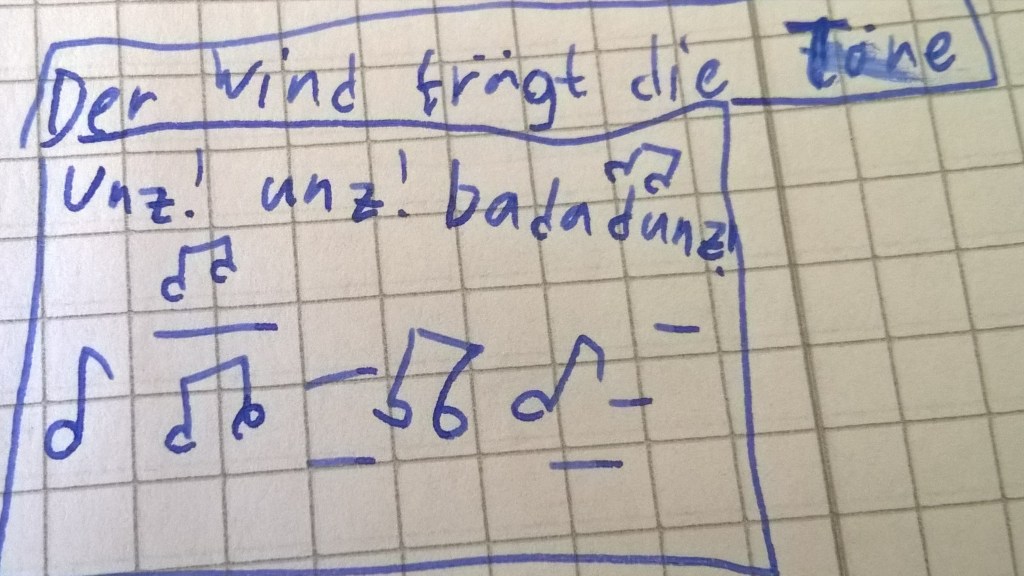 Der Wind frägt die Töne
Unz! unz! badadunz!